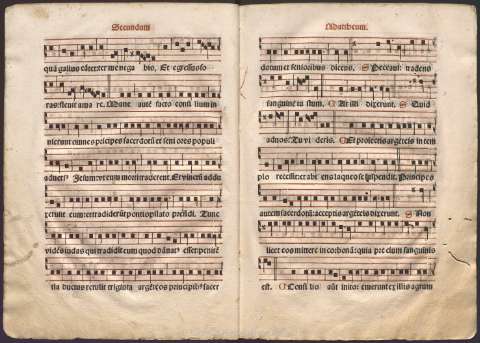 Secundum
quā gallus cātet ter me nega bis. Et egressus fo
ras: fleuit ama re. Mane autē facto consi lium in
ierunt omnes prīcipes sacerdotū et seni ores populi
aduersꝰ Jesum: vt eum morti traderent. Et vinctū addu
xerunt eum: et tradiderūt pontio pilato presidi. Tunc
vidēs iudas qui tradidit eum quod dānatꝰ esset: penitē
tia ductus retulit triginta argēteos principibꝰ sacer
Mattheum.
dotum et senioribus dicens. Peccaui: tradens
sanguinē iustum. At illi dixerunt. Quid
ad nos? Tu vi deris. Et proiectis argēteis in tem
plo recessit: et abi ens laqueo se suspendit. Principes
autem sacerdotū: acceptis argēteis dixerunt. Non
licet eos mittere in corbonā: quia precium sanguinis
est. Consi lio aūt inito: emerunt ex illis agrum